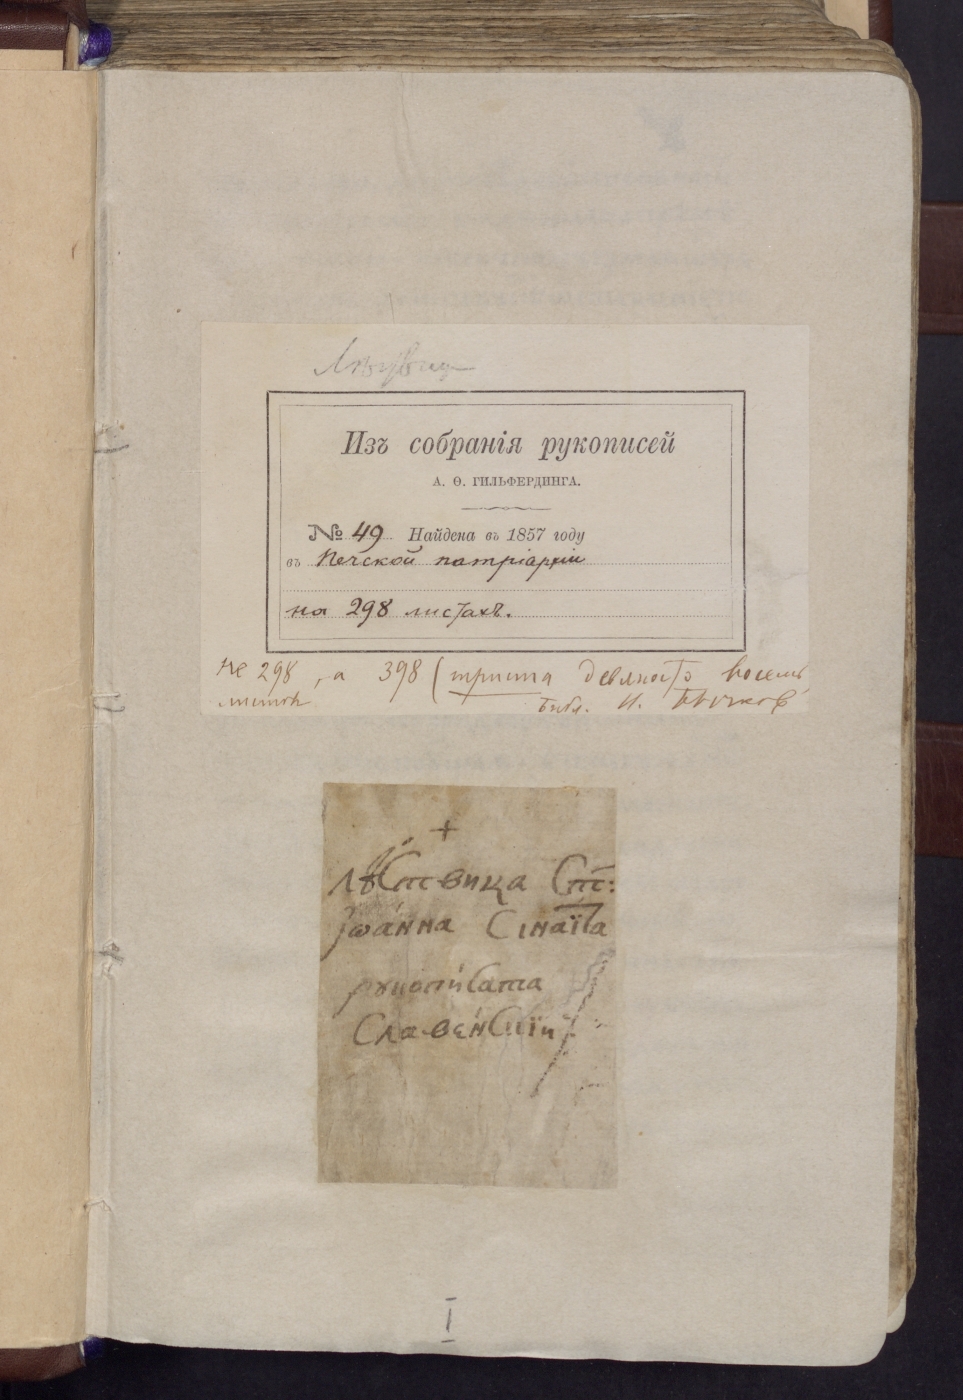 Лѣствица
Изъ собранія рукописей
А. Ѳ. ГИЛЬФЕРДИНГА.
№ 49 Найдена въ 1857 году
въ Печской патріархіи
на 298 листахъ.
Не 298, а 398 (триста девяносто восемь
листовъ Библ. И. Бычковъ
+
Лѣствица Ст҃:
Іѡа́нна Сінаїта
рукопи́сата
Славе́нскїи
I